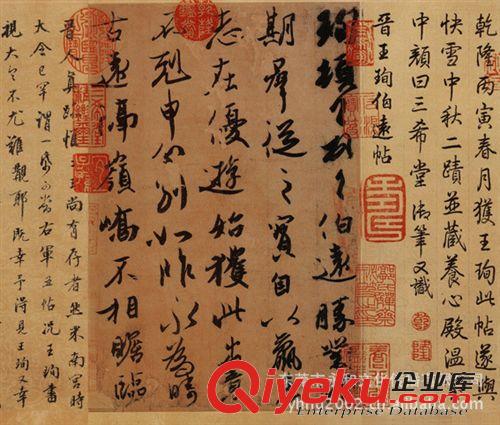 乾隆丙寅春月獲王珣此帖遂與
快雪中秋二蹟並藏養心殿溫
中顏曰三希堂御筆又識
晉王珣伯遠帖
珣頓首頓首伯遠勝業
期群從之寶自以羸
志在優遊始獲此出意
不剋申分別如昨永為疇
古遠隔嶺嶠不相瞻臨
晉人真跡惟二王尚有存者然米南宮時
大令已罕謂一紙可當右軍五帖況王珣書
視大令不尤難覯耶既幸予得見王珣又幸
企业库
Enterprise Database